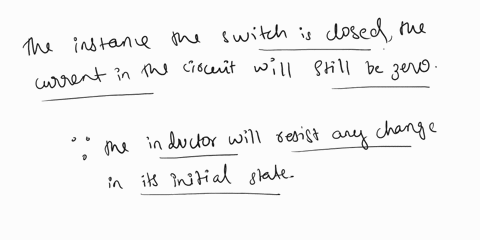 The instance the switch is closed, the
current in the circuit will still be zero.
∵ the inductor will resist any change
in its initial state.